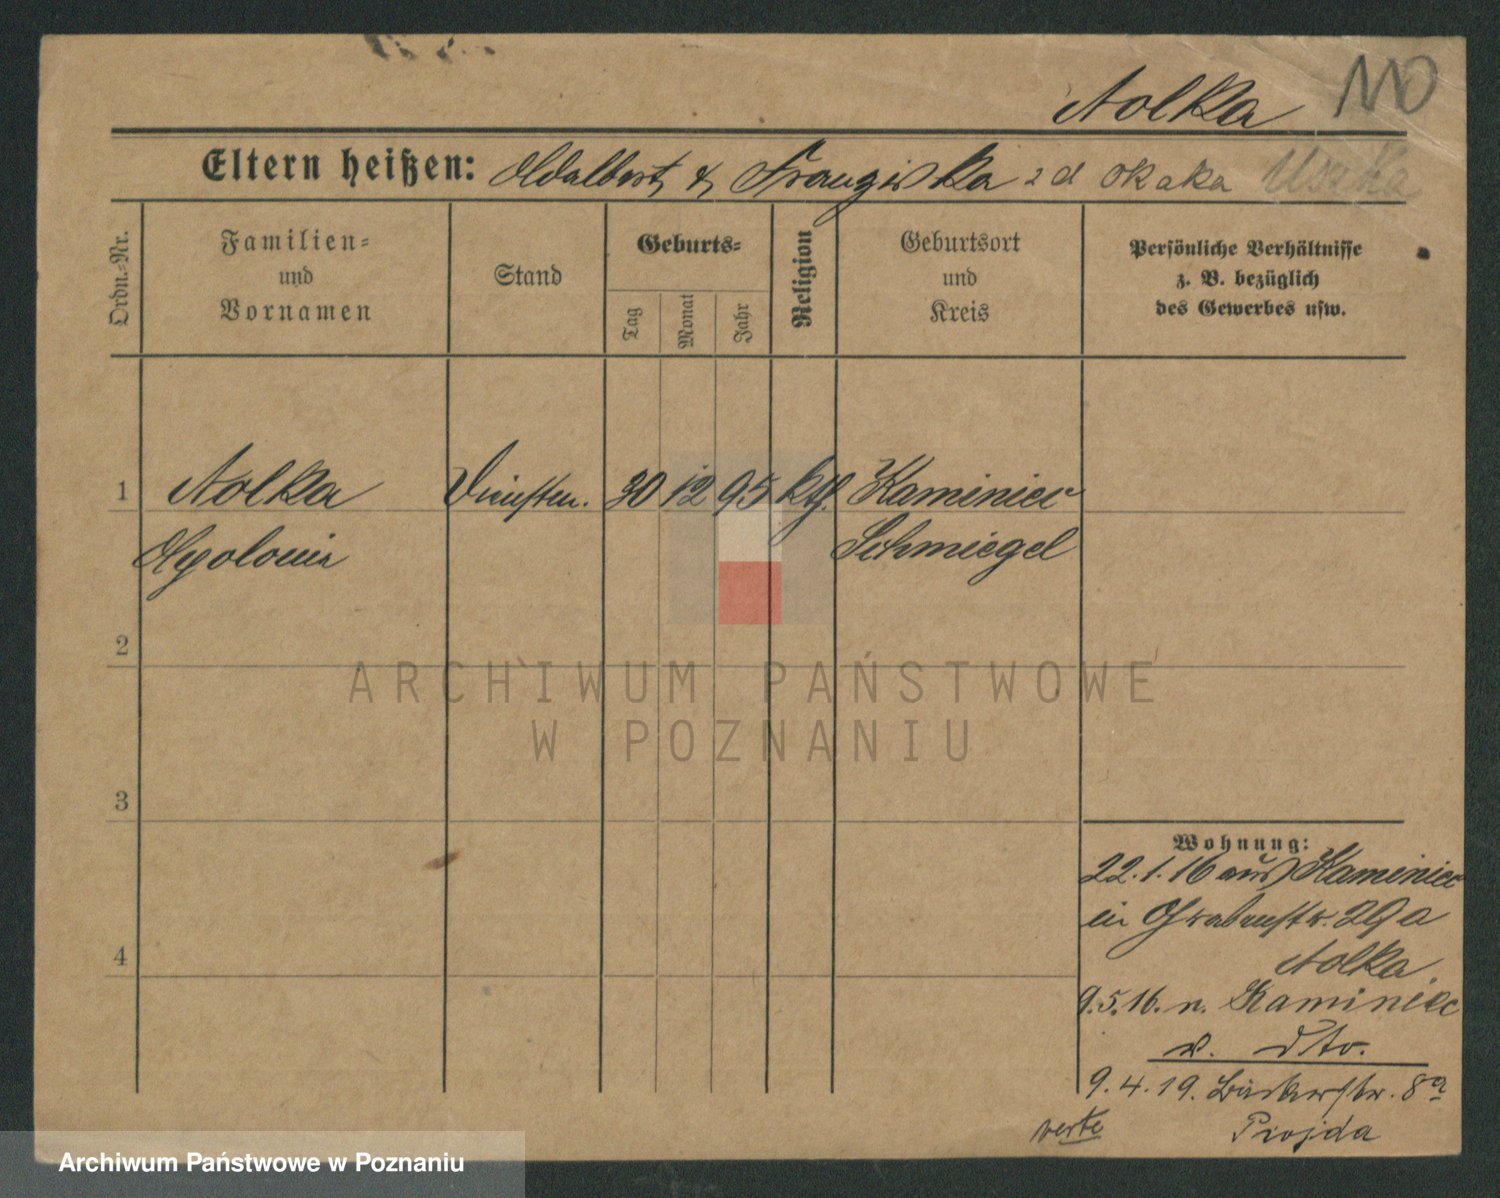 Nolka 110
Eltern heißen: Adalbert & Franziska Uszka
Ordn.-Nr.
Familien-
und
Vornamen
Stand
Geburts-
Tag
Monat
Jahr
Religion
Geburtsort
und
Kreis
Persönliche Verhältnisse
z. B. bezüglich
des Gewerbes usw.
1 Nolka 30 12 95 kth. Kaminiec
Apolonia Schmiegel
2
3
4
ARCHIWUM PAŃSTWOWE
W POZNANIU
Wohnung:
22.1.16 aus Kaminiec
in Grabenstr. 29a
Nolka
9.5.16. n. Kaminiec
v. dto.
9.4.19. 8a
verte
Archiwum Państwowe w Poznaniu